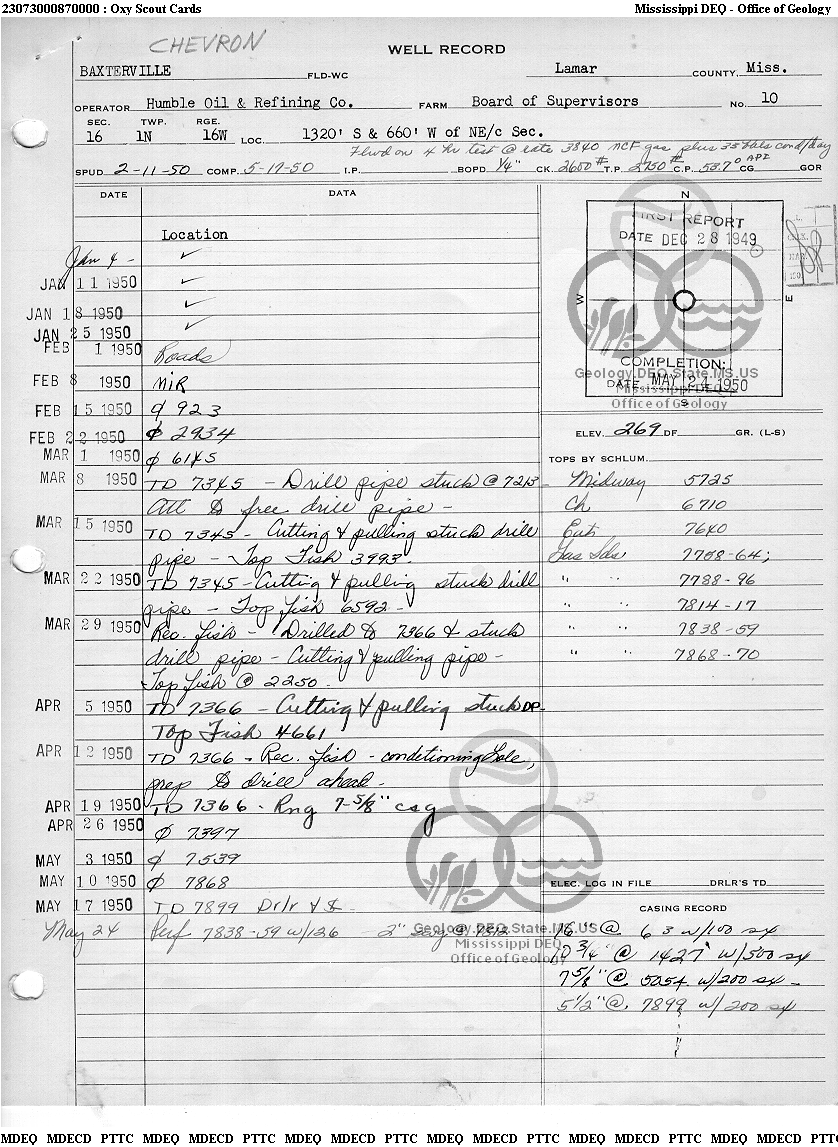 23073000870000 : Oxy Scout Cards Mississippi DEQ - Office of Geology
CHEVRON
WELL RECORD
BAXTERVILLE FLD-WC Lamar COUNTY, Miss.
OPERATOR Humble Oil & Refining Co. FARM Board of Supervisors No. 10
SEC. TWP. RGE.
16 1N 16W LOC. 1320' S & 660' W of NE/c Sec.
Flwd on 4 hr test @ rate 3840 MCF gas plus 35 bbls cond/day
SPUD 2-11-50 COMP. 5-17-50 I.P. BOPD 1/4" CK. 2650# T.P. 2750# C.P. 53.7° API CG GOR
DATE DATA
Location
Jan 4 - ✓
JAN 11 1950 ✓
JAN 18 1950 ✓
JAN 25 1950 ✓
FEB 1 1950 Roads
FEB 8 1950 MIR
FEB 15 1950 φ 923
FEB 22 1950 φ 2934
MAR 1 1950 φ 6145
MAR 8 1950 TD 7345 - Drill pipe stuck @ 7213
Att to free drill pipe -
MAR 15 1950 TD 7345 - Cutting & pulling stuck drill
pipe - Top Fish 3993.
MAR 22 1950 TD 7345 - Cutting & pulling stuck drill
pipe - Top fish 6592 -
MAR 29 1950 Rec. fish - Drilled to 7366 & stuck
drill pipe - Cutting & pulling pipe -
Top fish @ 2250.
APR 5 1950 TD 7366 - Cutting & pulling stuck DP -
Top Fish 4661
APR 12 1950 TD 7366 - Rec. fish - conditioning hole,
prep to drill ahead -
APR 19 1950 TD 7366 - Rng 7-5/8" csg
APR 26 1950 φ 7397
MAY 3 1950 φ 7539
MAY 10 1950 φ 7868
MAY 17 1950 TD 7899 Drlr & S.
May 24 Perf 7838-59 w/126 2"
N
FIRST REPORT
DATE DEC 28 1949
W E
COMPLETION:
Geology.DEQ.State.MS.US
DATE MAY 24 1950
Mississippi DEQ
Office of Geology
S
ELEV. 269 DF GR. (L-S)
TOPS BY SCHLUM.
Midway 5725
Ch 6710
Eut 7640
Gas Sds 7758-64;
" " 7788-96
" " 7814-17
" " 7838-59
" " 7868-70
ELEC. LOG IN FILE DRLR'S TD
CASING RECORD
16" @ 63 w/100 sx
10 3/4" @ 1427' w/500 sx
7 5/8" @ 5054 w/200 sx -
5 1/2" @ 7899 w/200 sx
Geology.DEQ.State.MS.US
Mississippi DEQ
Office of Geology
MDEQ MDECD PTTC MDEQ MDECD PTTC MDEQ MDECD PTTC MDEQ MDECD PTTC MDEQ MDECD PTTC MDEQ MDECD PTTC